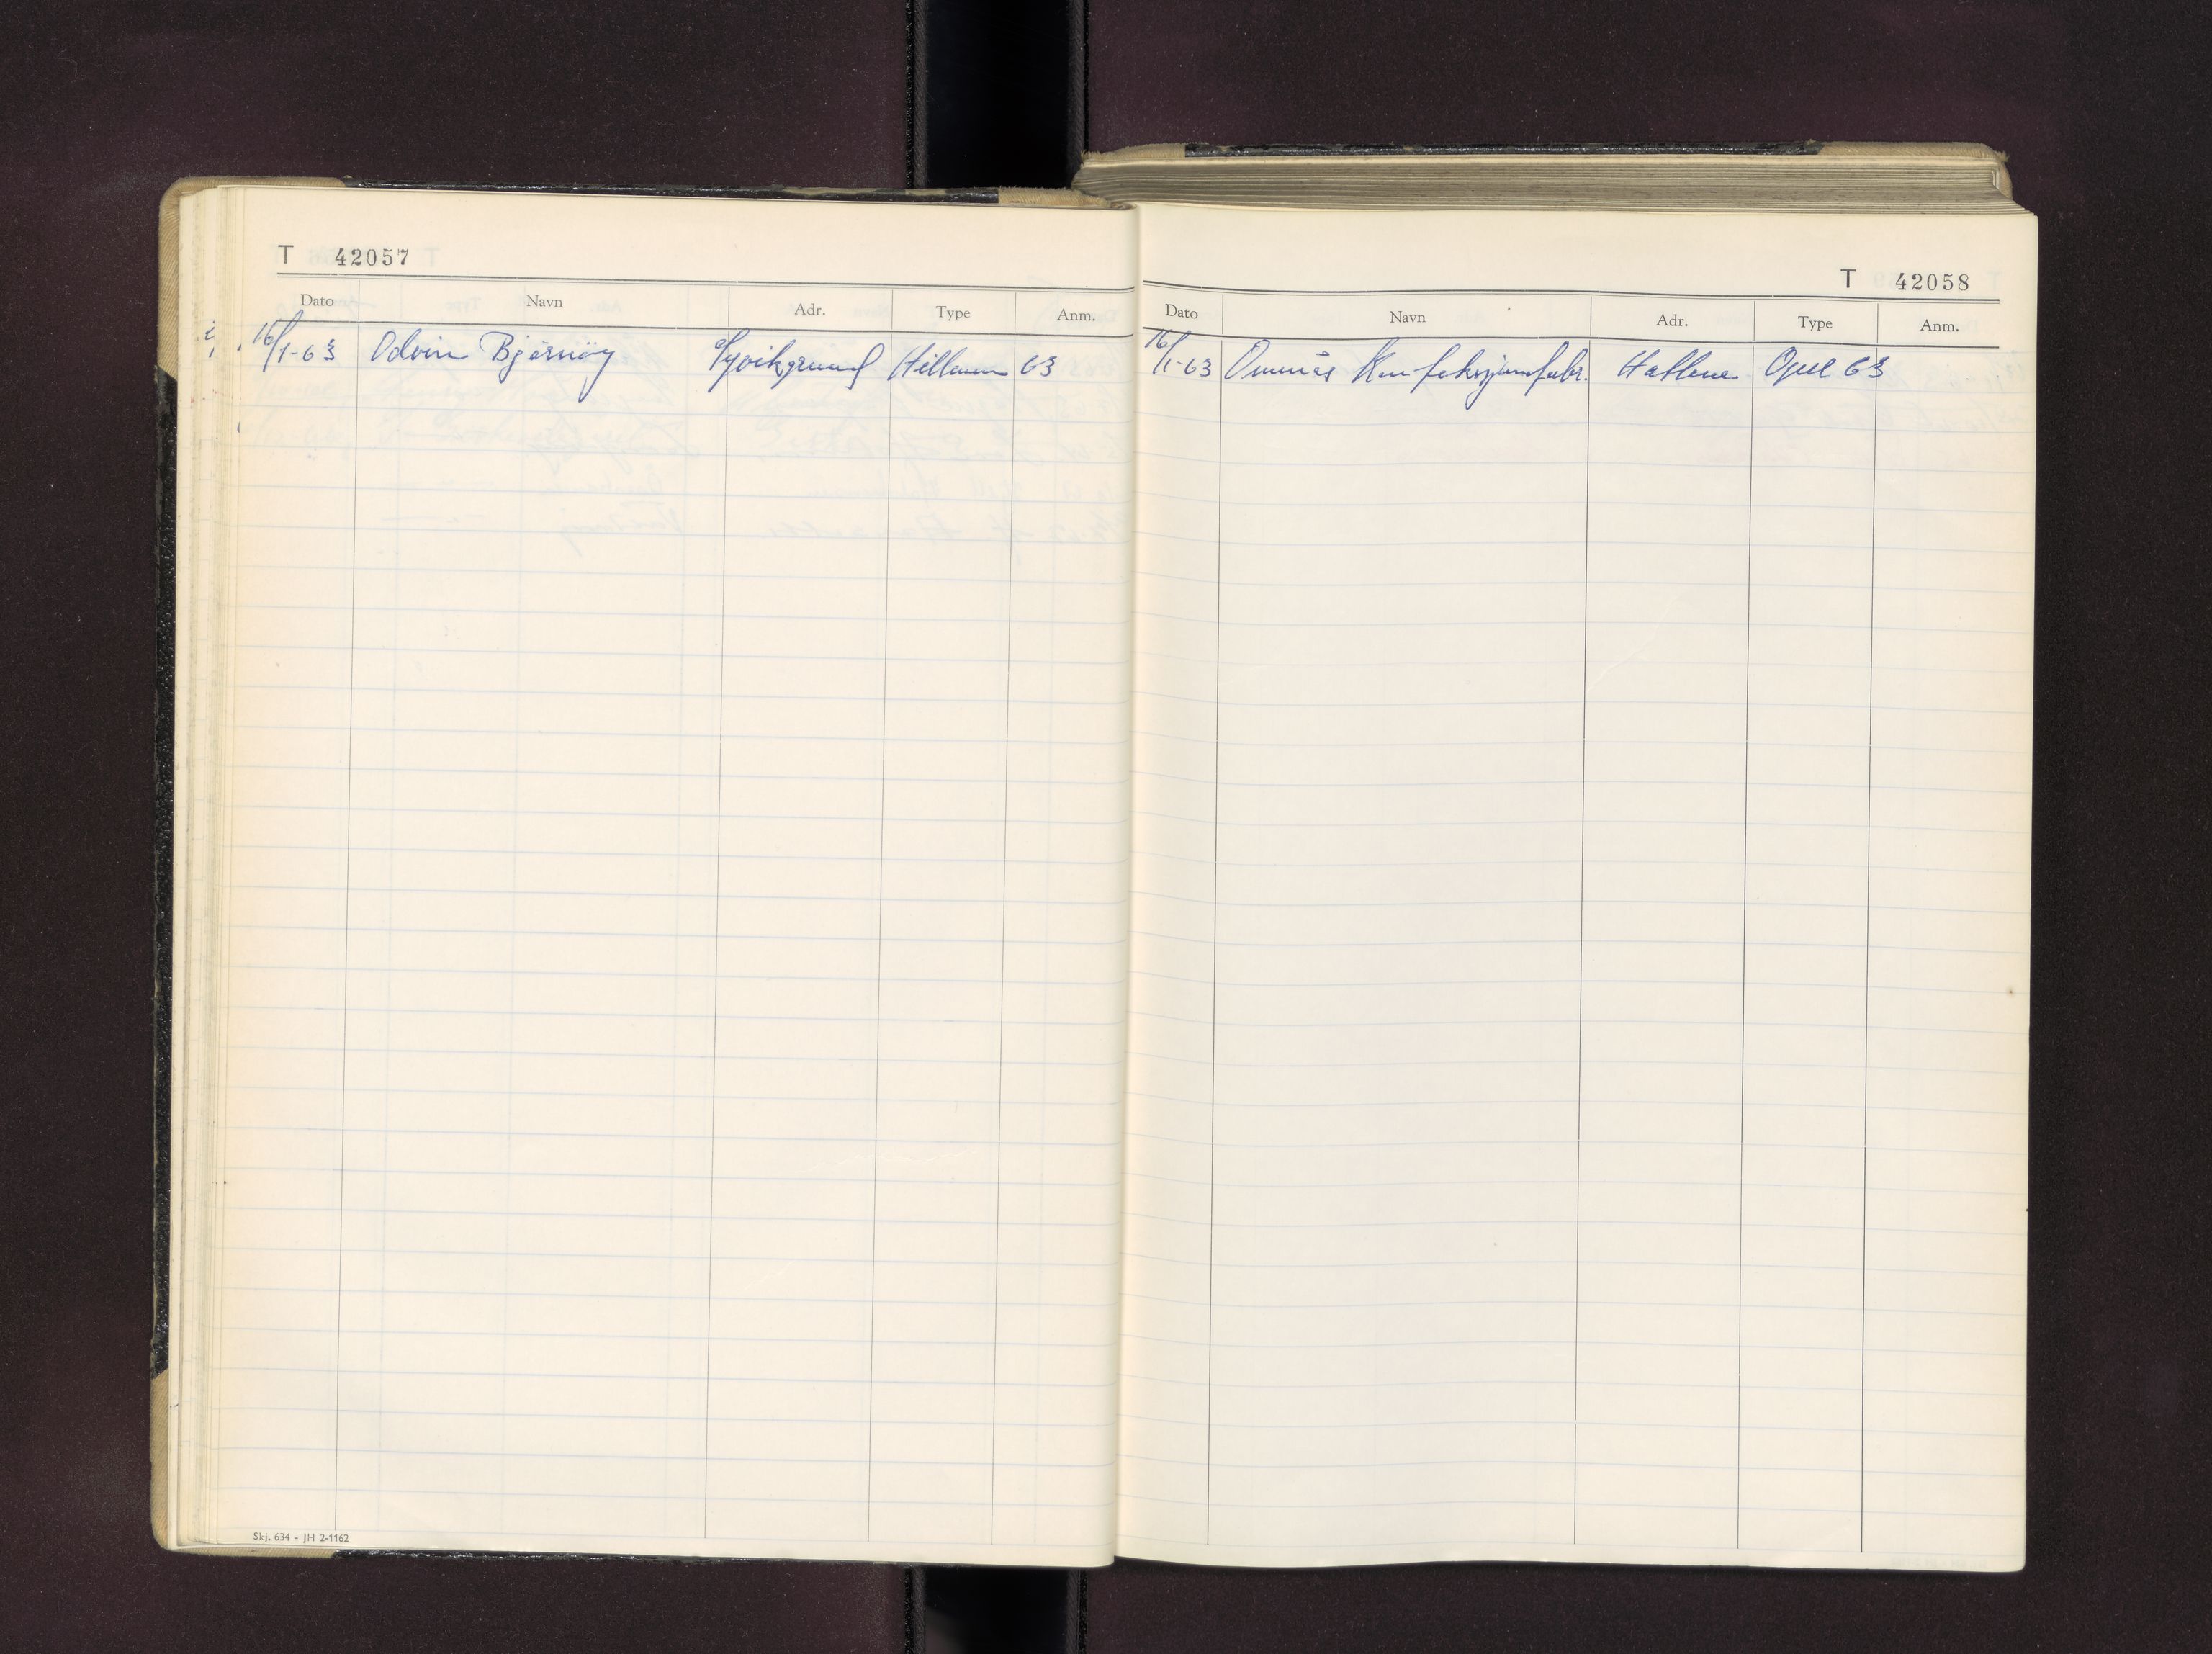 T 42057
Dato Navn Adr. Type Anm.
16/1-63 Odvin Bjørnøy Gyvikgrund Hillman 63
Skj. 634 - JH 2-1162
T 42058
Dato Navn Adr. Type Anm.
16/1-63 Ommås Konfeksjonsfabr. Hatlane Opel 63